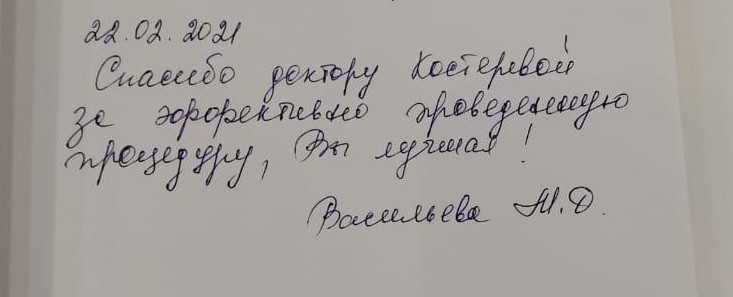 22.02.2021
Спасибо доктору Костеревой
за эффективно проведенную
процедуру, Вы лучшая!
Васильева М.Д.